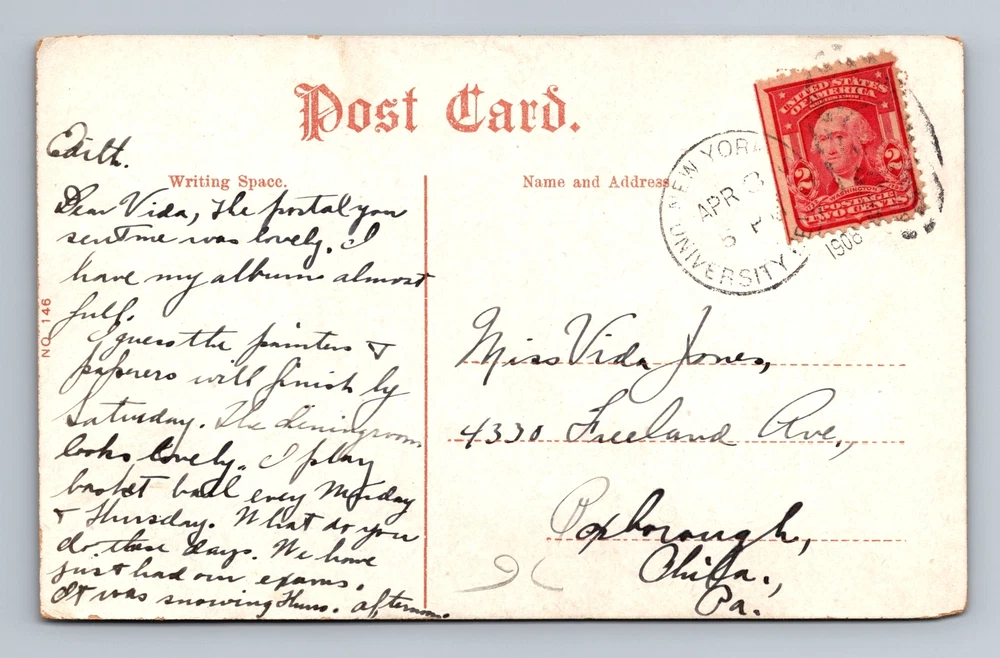 Post Card.
Edith.
Writing Space.
Name and Address.
Dear Vida, The portal you
sent me was lovely. I
have my album almost
full.
I guess the painters &
paperers will finish by
Saturday. The diningroom
looks lovely. I play
basket ball every Monday
& Thursday. What do you
do these days. We have
just had our exams.
It was snowing Thurs. afternoon.
NO. 146
UNITED STATES
OF AMERICA
2 2
WASHINGTON
POSTAGE
TWO CENTS
NEW YORK
APR 3
5 P
1908
UNIVERSITY
Miss Vida Jones,
4330 Freeland Ave.,
Roxborough,
Phila.,
Pa.